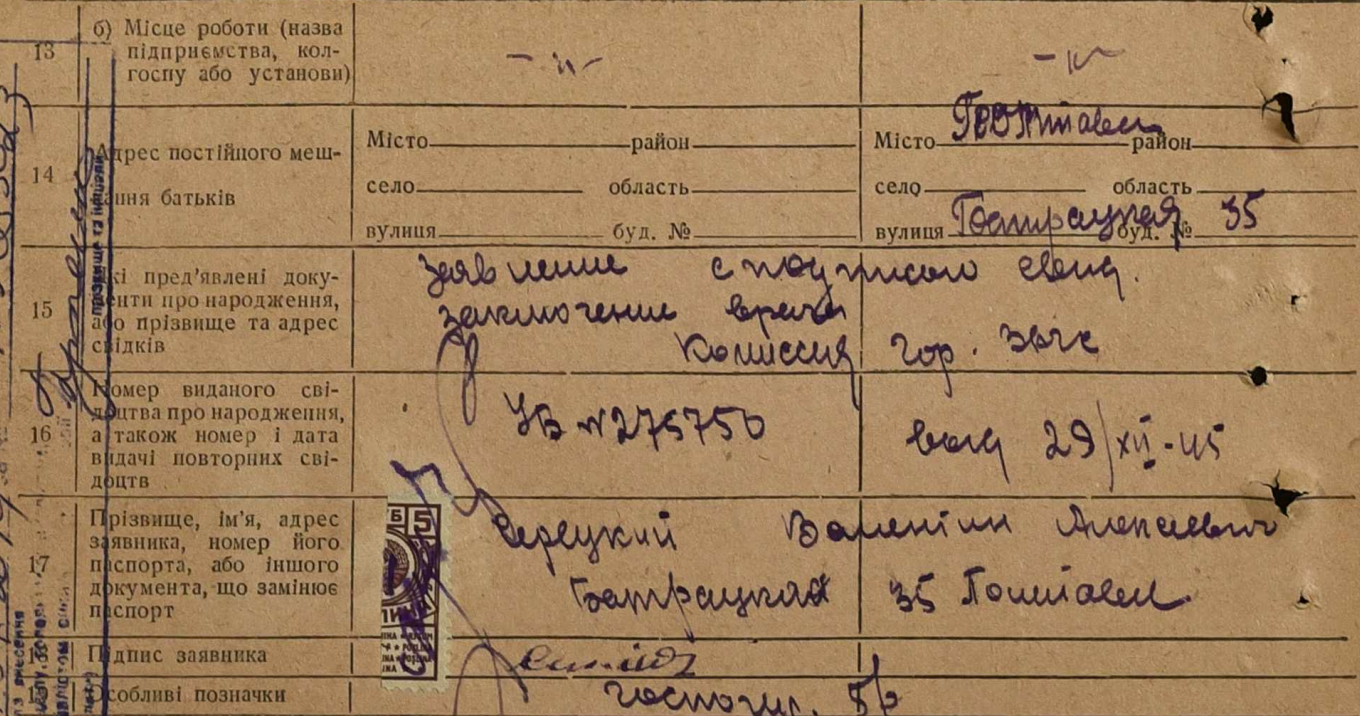 13 б) Місце роботи (назва
підприємства, кол-
госпу або установи)
-"- -"-
14 Адрес постійного меш-
кання батьків
Місто район Місто Полтава район
село область село область
вулиця буд. № вулиця Батрацкая буд. № 35
15 Які пред'явлені доку-
менти про народження,
або прізвище та адрес
свідків
заявление с подписью свид.
заключение врача
Комиссия гор. Загс
16 Номер виданого сві-
доцтва про народження,
а також номер і дата
видачі повторних сві-
доцтв
УБ №275750 выд 29/XII-45
17 Прізвище, ім'я, адрес
заявника, номер його
паспорта, або іншого
документа, що замінює
паспорт
Валентин Алексеевич
Батрацкая 35 Полтава
Підпис заявника
Особливі позначки
Б 5
прізвище та ініціали